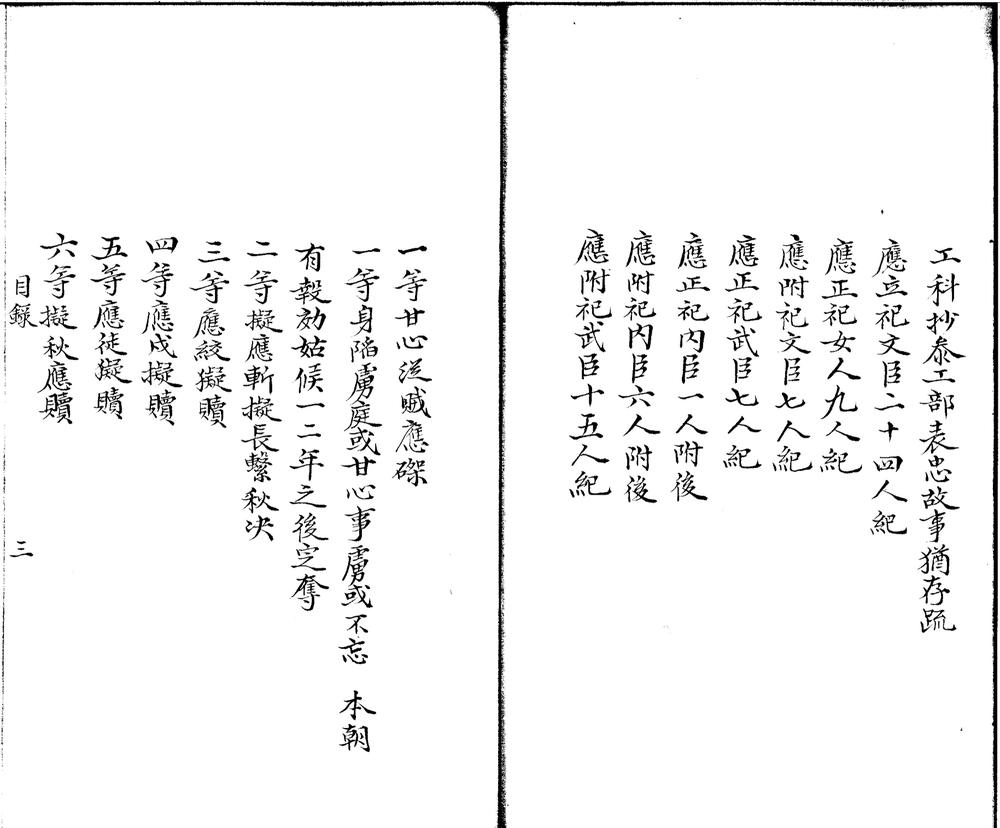 工科抄叅工部表忠故事猶存疏
應立祀文臣二十四人紀
應正祀女人九人紀
應附祀文臣七人紀
應正祀武臣七人紀
應正祀內臣一人附後
應附祀内臣六人附後
應附祀武臣十五人紀
一等甘心從賊應磔
一等身陷虜庭或甘心事虜或不忘 本朝
有報効姑候一二年之後定奪
二等擬應斬擬長繫秋决
三等應絞擬贖
四等應戍擬贖
五等應徒擬贖
六等擬秋應贖
目録 三